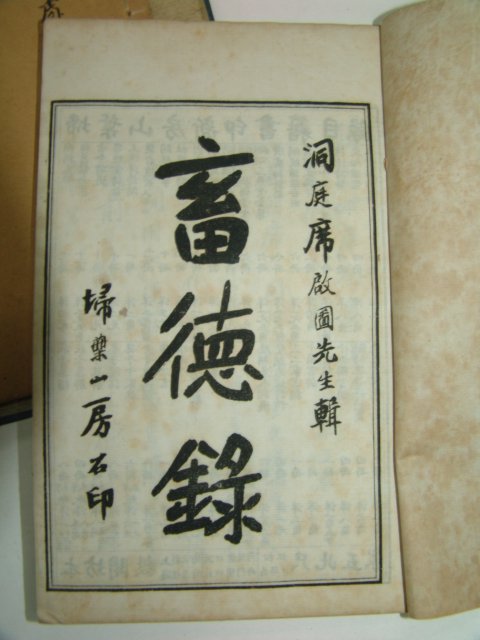 洞庭席啟圖先生輯
畜德錄
埽葉山房石印